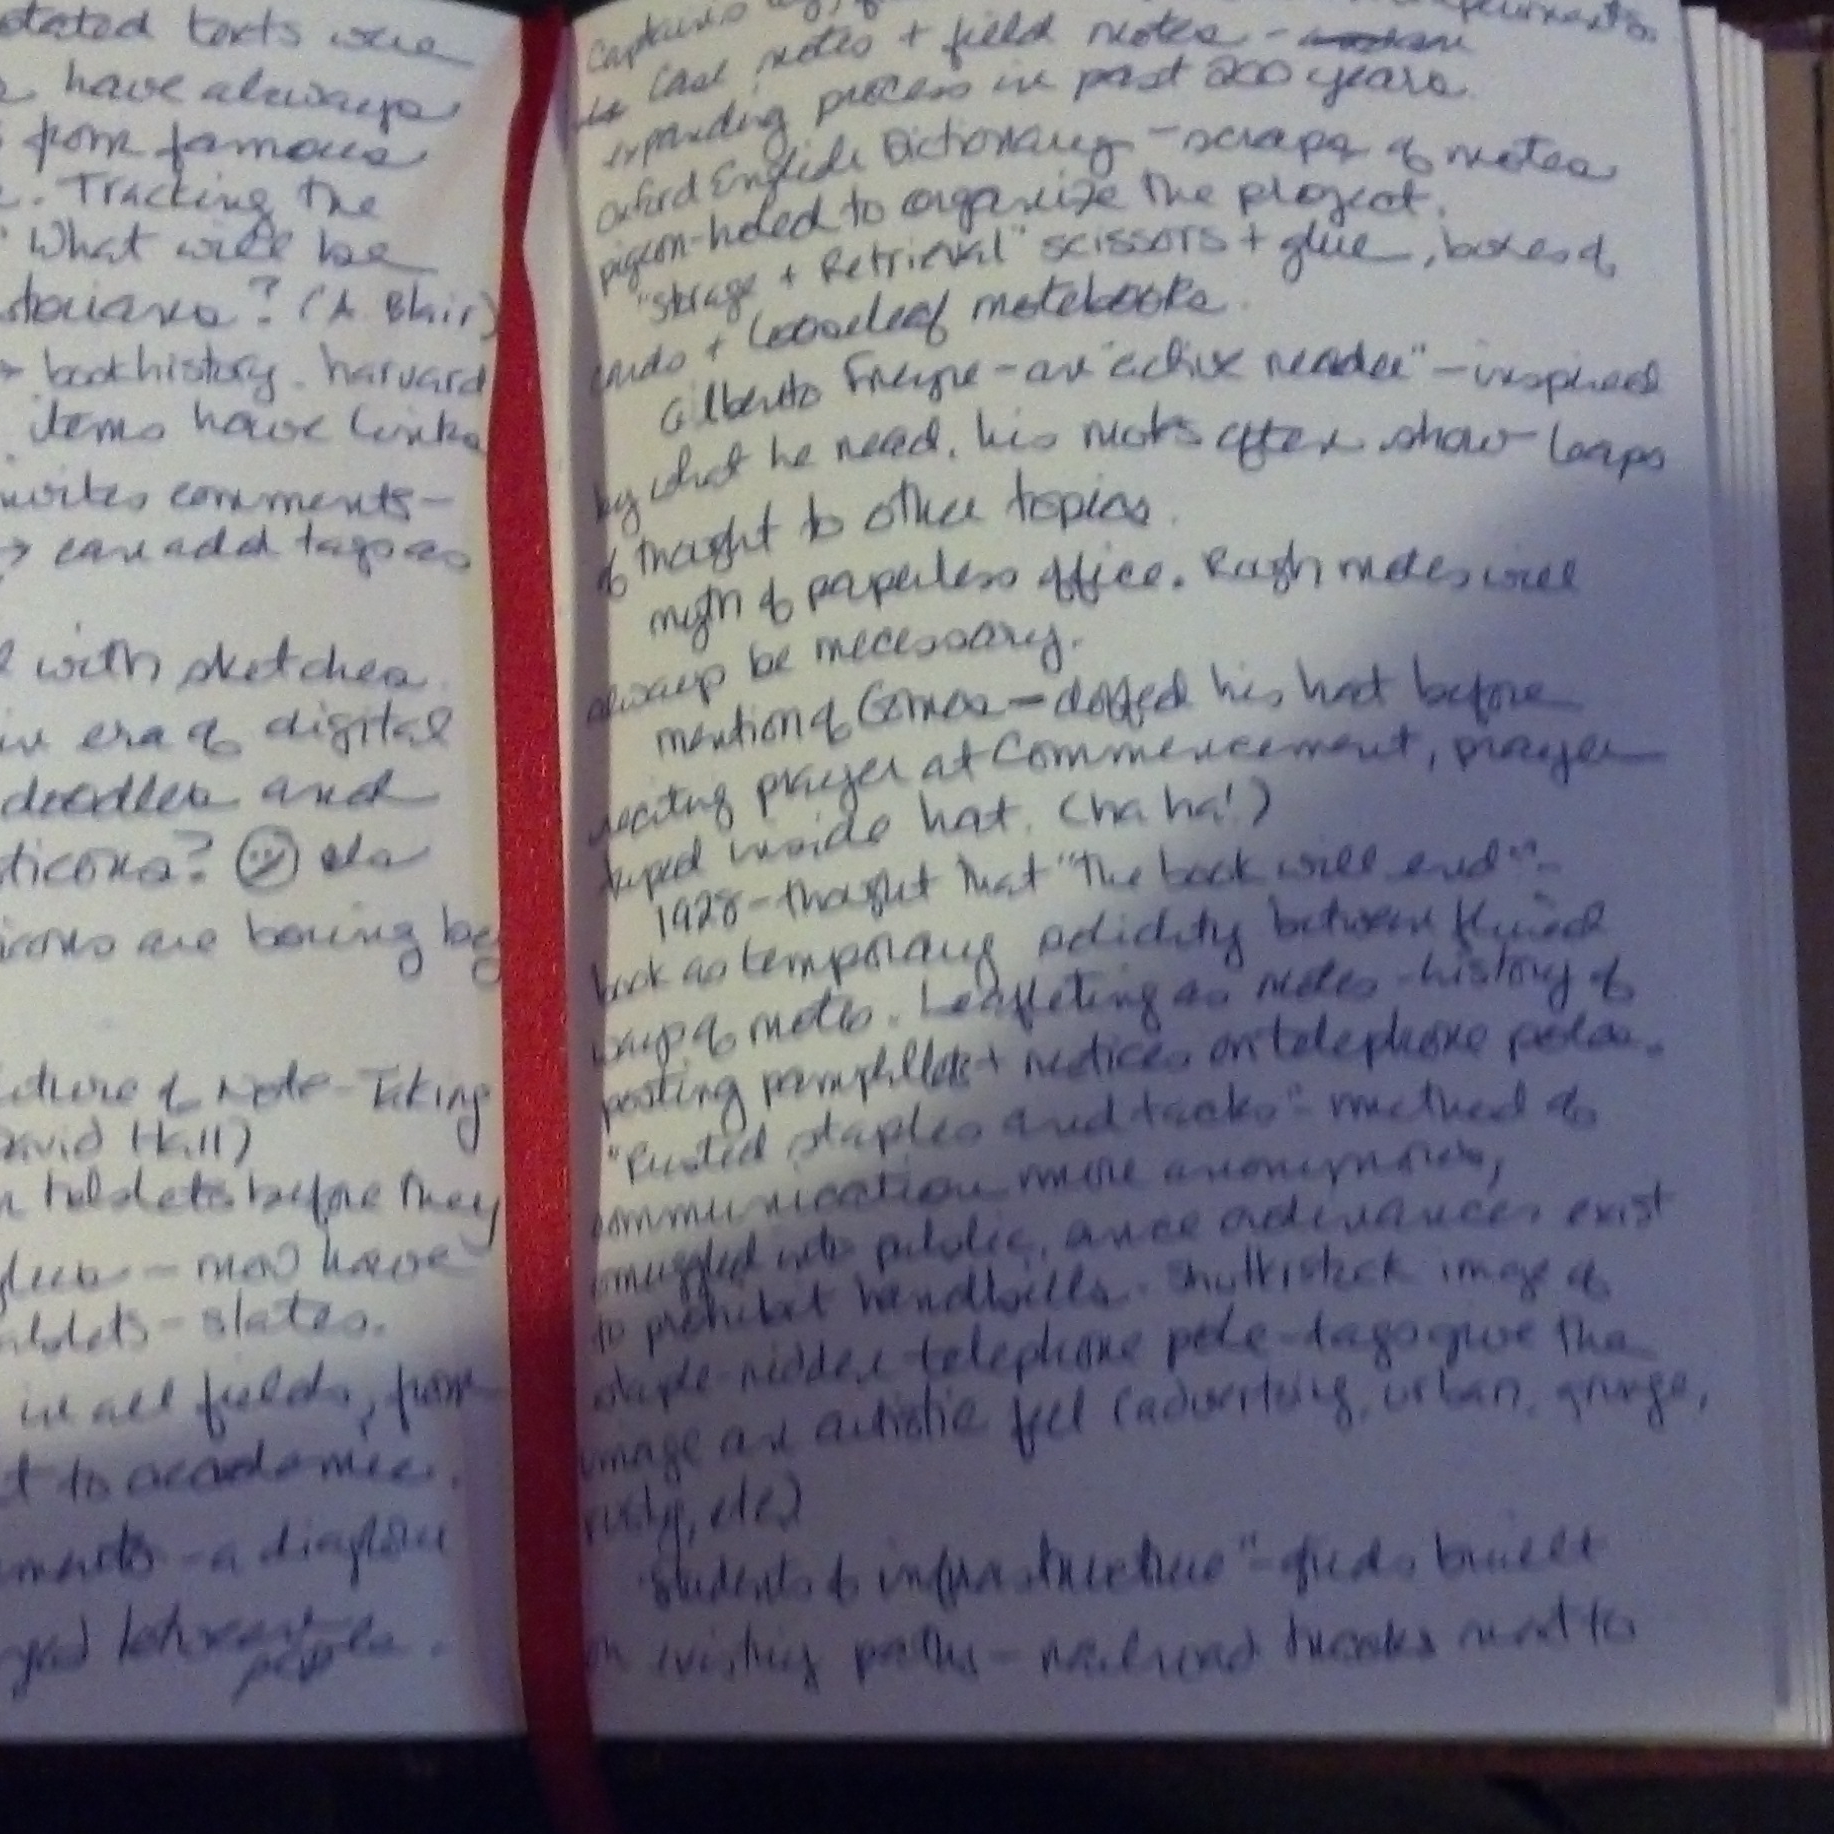 stated texts were
have always
from famous
. Tracking the
What will be
storians? (A. Blair)
→ bookhistory.harvard
items have links
invites comments -
→ can add tags as
with sketches.
in era of digital
doodles and
ticons? ☺
icons are boring
Future of Note-Taking
David Hall)
tablets before they
- now have
tablets - slates.
in all fields, from
t to academic.
ments - a
between people.
Captains
case notes + field notes -
expanding process in past 200 years.
Oxford English Dictionary - scraps of notes
pigeon-holed to organize the project.
"Storage + Retrieval" scissors + glue, boxes of
cards + looseleaf notebooks.
Gilberto Freyre - an "active reader" - inspired
by what he read, his notes often show leaps
of thought to other topics.
myth of paperless office. Rough notes will
always be necessary.
mention of Gomes - doffed his hat before
reciting prayer at Commencement, prayer
taped inside hat. (ha ha!)
1928 - thought that "the book will end" -
book as temporary solidity between fluid
ways of notes. Leafleting as notes - history of
posting pamphlets + notices on telephone poles.
"Rusted staples and tacks" - method of
communication more anonymous,
smuggled into public, since ordinances exist
to prohibit handbills. Shutterstock image of
staple-ridden telephone pole - tags give the
image an artistic feel (advertising, urban, grunge,
rusty, etc)
"Students of infrastructure" - grids built
on existing paths - railroad tracks next to